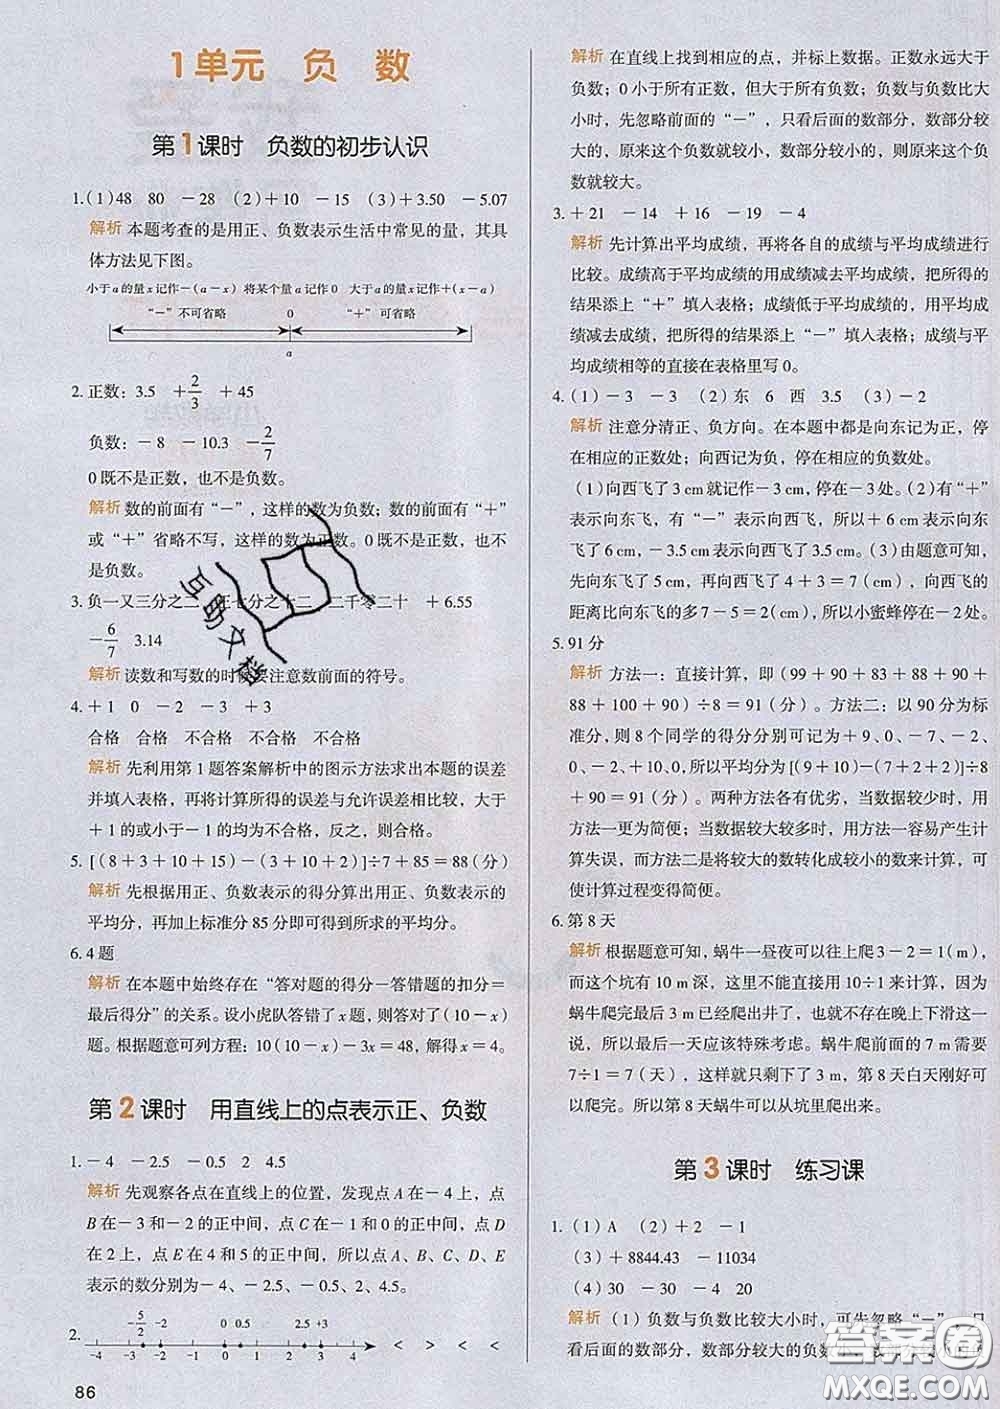 1单元 负 数
第1课时 负数的初步认识
1.(1)48 80 －28 (2)＋10 －15 (3)＋3.50 －5.07
解析 本题考查的是用正、负数表示生活中常见的量，其具
体方法见下图。
小于a的量x记作－(a－x) 将某个量a记作0 大于a的量x记作＋(x－a)
“－”不可省略 0 “＋”可省略
a
2. 正数：3.5 ＋2/3 ＋45
负数：－8 －10.3 －2/7
0既不是正数，也不是负数。
解析 数的前面有“－”，这样的数为负数；数的前面有“＋”
或“＋”省略不写，这样的数为正数。0既不是正数，也不
是负数。
3. 负一又三分之二 正七分之十二 二千零二十 ＋6.55
－6/7 3.14
解析 读数和写数的时候要注意数前面的符号。
4. ＋1 0 －2 －3 ＋3
合格 合格 不合格 不合格 不合格
解析 先利用第1题答案解析中的图示方法求出本题的误差
并填入表格，再将计算所得的误差与允许误差相比较，大于
＋1的或小于－1的均为不合格，反之，则合格。
5. [(8＋3＋10＋15)－(3＋10＋2)]÷7＋85＝88(分)
解析 先根据用正、负数表示的得分算出用正、负数表示的
平均分，再加上标准分85分即可得到所求的平均分。
6. 4题
解析 在本题中始终存在“答对题的得分－答错题的扣分＝
最后得分”的关系。设小虎队答错了x题，则答对了(10－x)
题。根据题意可列方程：10(10－x)－3x＝48，解得x＝4。
第2课时 用直线上的点表示正、负数
1. －4 －2.5 －0.5 2 4.5
解析 先观察各点在直线上的位置，发现点A在－4上，点
B在－3和－2的正中间，点C在－1和0的正中间，点D
在2上，点E在4和5的正中间，所以点A、B、C、D、E
表示的数分别为－4、－2.5、－0.5、2、4.5。
2. －5/2 －2 0 0.5 2.5 ＋3
－4 －3 －2 －1 0 1 2 3 4 < < > >
86
解析 在直线上找到相应的点，并标上数据。正数永远大于
负数；0小于所有正数，但大于所有负数；负数与负数比大
小时，先忽略前面的“－”，只看后面的数部分，数部分较
大的，原来这个负数就较小，数部分较小的，则原来这个负
数就较大。
3. ＋21 －14 ＋16 －19 －4
解析 先计算出平均成绩，再将各自的成绩与平均成绩进行
比较。成绩高于平均成绩的用成绩减去平均成绩，把所得的
结果添上“＋”填入表格；成绩低于平均成绩的，用平均成
绩减去成绩，把所得的结果添上“－”填入表格；成绩与平
均成绩相等的直接在表格里写0。
4. (1)－3 －3 (2)东 6 西 3.5 (3)－2
解析 注意分清正、负方向。在本题中都是向东记为正，停
在相应的正数处；向西记为负，停在相应的负数处。
(1)向西飞了3 cm就记作－3 cm，停在－3处。(2)有“＋”
表示向东飞，有“－”表示向西飞，所以＋6 cm表示向东
飞了6 cm，－3.5 cm表示向西飞了3.5 cm。(3)由题意可知，
先向东飞了5 cm，再向西飞了4＋3＝7(cm)，向西飞的
距离比向东飞的多7－5＝2(cm)，所以小蜜蜂停在－2处。
5. 91分
解析 方法一：直接计算，即(99＋90＋83＋88＋90＋
88＋100＋90)÷8＝91(分)。方法二：以90分为标
准分，则8个同学的得分分别可记为＋9、0、－7、－2、
0、－2、＋10、0，所以平均分为[(9＋10)－(7＋2＋2)]÷8
＋90＝91(分)。两种方法各有优劣，当数据较少时，用
方法一更为简便；当数据较大较多时，用方法一容易产生计
算失误，而方法二是将较大的数转化成较小的数来计算，可
使计算过程变得简便。
6. 第8天
解析 根据题意可知，蜗牛一昼夜可以往上爬3－2＝1(m)，
而这个坑有10 m深，这里不能直接用10÷1来计算。因为
蜗牛爬完最后3 m已经爬出井了，也就不存在晚上下滑这一
说，所以最后一天应该特殊考虑。蜗牛爬前面的7 m需要
7÷1＝7(天)，这样就只剩下了3 m，第8天白天刚好可
以爬完。所以第8天蜗牛可以从坑里爬出来。
第3课时 练习课
1. (1)A (2)＋2 －1
(3)＋8844.43 －11034
(4)30 －30 －4 20
解析 (1)负数与负数比较大小时，可先忽略“－”，只
看后面的数部分，数部分较大的负数
互助文档
答案圈
MXQE.COM